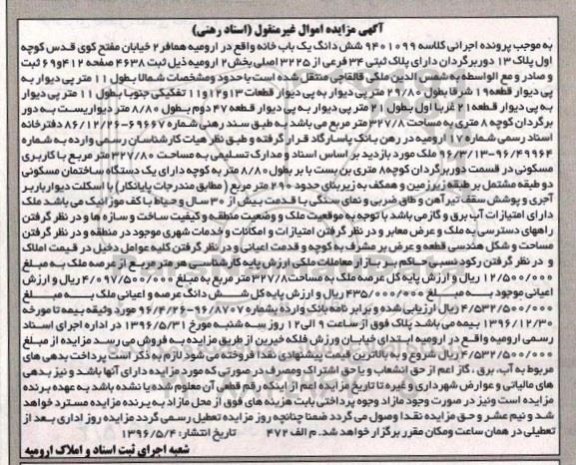 آگهی مزایده اموال غیرمنقول (اسناد رهنی)
به موجب پرونده اجرائی کلاسه ۹۴۰۱۰۹۹ شش دانگ یک باب خانه واقع در ارومیه همافر۲ خیابان مفتح کوی قدس کوچه
اول پلاک ۱۳ دوربرگردان دارای پلاک ثبتی ۳۴ فرعی از ۳۲۲۵ اصلی بخش۲ ارومیه ذیل ثبت ۴۶۳۸ صفحه ۴۱۲و۶۹ ثبت
و صادر و مع الواسطه به شمس الدین ملکی قالقاچی منتقل شده است با حدود و مشخصات شمالا بطول ۱۱ متر پی دیوار به
پی دیوار قطعه۱۹ شرقا بطول ۲۹/۸۰ متر پی دیوار به پی دیوار قطعات ۱۳و۱۲و۱۱ تفکیکی جنوبا بطول ۱۱ متر پی دیوار
به پی دیوار قطعه۲۱ غربا اول بطول ۲۱ متر پی دیوار به پی دیوار قطعه ۴۷ دوم بطول ۸/۸۰ متر دیواریست به دور
برگردان کوچه ۸ متری به مساحت ۳۲۷/۸ متر مربع می باشد به طبق سند رهنی شماره ۶۹۶۶۷-۸۶/۱۲/۲۶ دفترخانه
اسناد رسمی شماره ۱۷ ارومیه در رهن بانک پاسارگاد قرار گرفته و طبق نظر هیات کارشناسان رسمی وارده به شماره
۹۶/۴۹۹۶۴-۹۶/۳/۱۳ ملک مورد بازدید بر اساس اسناد و مدارک تسلیمی به مساحت ۳۲۷/۸۰ متر مربع با کاربری
مسکونی در قسمت دوربرگردان کوچه۸ متری بن بست با بر بطول ۸/۸۰ متر به کوچه دارای یک دستگاه ساختمان مسکونی
دو طبقه مشتمل بر طبقه زیرزمین و همکف به زیربنای حدود ۲۹۰ متر مربع (مطابق مندرجات پایانکار) با اسکلت دیوار باربر
آجری و پوشش سقف تیرآهن و طاق ضربی و نمای سنگی با قدمت بیش از ۳۰ سال و حیاط با کف موزائیک می باشد ملک
دارای امتیازات آب برق و گاز می باشد با توجه به موقعیت ملک و وضعیت منطقه و کیفیت ساخت و سازه ها و در نظر گرفتن
راههای دسترسی به ملک و عرض معابر و در نظر گرفتن امتیازات و امکانات و خدمات شهری موجود در منطقه و در نظر گرفتن
مساحت و شکل هندسی قطعه و عرض بر مشرف به کوچه و قدمت اعیانی و در نظر گرفتن کلیه عوامل دخیل در قیمت املاک
و در نظر گرفتن رکود نسبی حاکم بر بازار معاملات ملکی ارزش پایه کارشناسی هر متر مربع از عرصه ملک به مبلغ
۱۲/۵۰۰/۰۰۰ ریال و ارزش پایه کل عرصه ملک به مساحت۳۲۷/۸ متر مربع به مبلغ ۴/۰۹۷/۵۰۰/۰۰۰ ریال و ارزش
اعیانی موجود به مبلغ ۴۳۵/۰۰۰/۰۰۰ ریال و ارزش پایه کل شش دانگ عرصه و اعیانی ملک به مبلغ
۴/۵۳۲/۵۰۰/۰۰۰ ریال ارزیابی شده و برابر نامه بانک وارده بشماره ۹۶/۸۷۰۷-۹۶/۴/۲۶ مورد وثیقه بیمه تا مورخه
۱۳۹۶/۱۲/۳۰ بیمه می باشد پلاک فوق از ساعت ۹ الی ۱۲ روز سه شنبه مورخ ۱۳۹۶/۵/۳۱ در اداره اجرای اسناد
رسمی ارومیه واقع در ارومیه ابتدای خیابان ورزش فلکه خیرین از طریق مزایده به فروش می رسد مزایده از مبلغ
۴/۵۳۲/۵۰۰/۰۰۰ ریال شروع و به بالاترین قیمت پیشنهادی نقدا فروخته می شود لازم به ذکر است پرداخت بدهی های
مربوط به آب، برق، گاز اعم از حق انشعاب و یا حق اشتراک و مصرف در صورتی که مورد مزایده دارای آنها باشد و نیز بدهی
های مالیاتی و عوارض شهرداری و غیره تا تاریخ مزایده اعم از اینکه رقم قطعی آن معلوم شده یا نشده باشد به عهده برنده
مزایده است ونیز در صورت وجود مازاد وجوه پرداختی بابت هزینه های فوق از محل مازاد به برنده مزایده مسترد خواهد
شد و نیم عشر و حق مزایده نقدا وصول می گردد ضمنا چنانچه روز مزایده تعطیل رسمی گردد مزایده روز اداری بعد از
تعطیلی در همان ساعت ومکان مقرر برگزار خواهد شد. م الف ۴۷۲ تاریخ انتشار: ۱۳۹۶/۵/۴
شعبه اجرای ثبت اسناد و املاک ارومیه